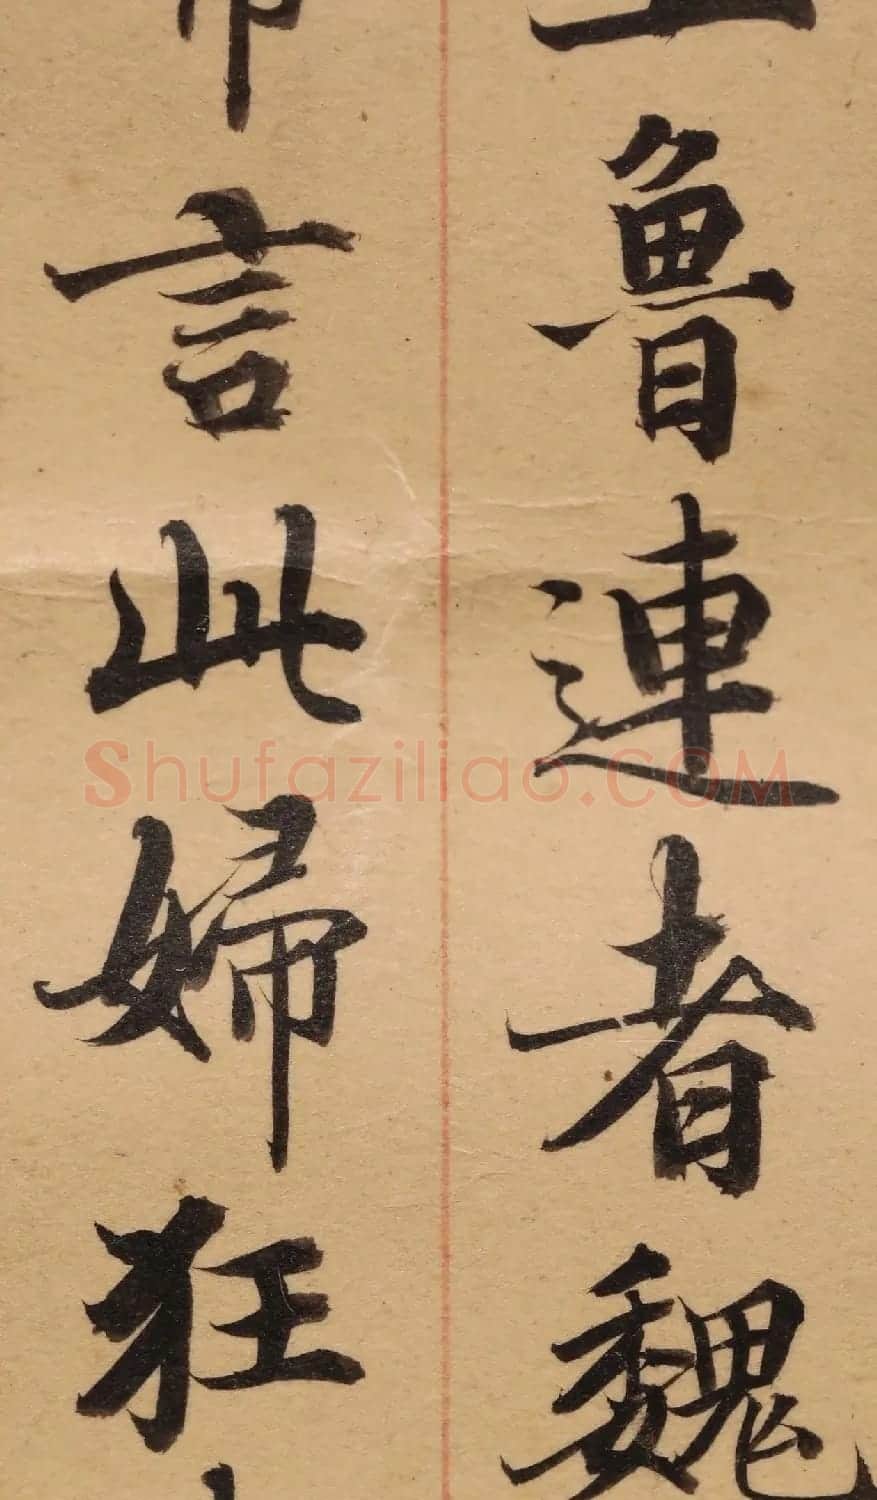 魯連者魏
言此婦狂
Shufaziliao.COM